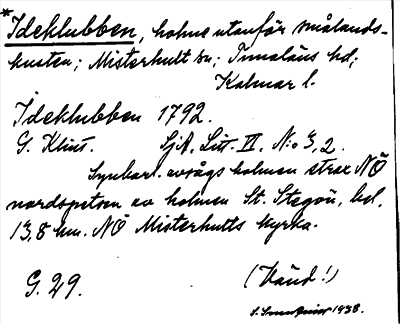 * Ideklubben, holme utanför smålands-
kusten; Misterhult sn; Tunaläns hd;
Kalmar l.
Ideklubben 1792.
G. Klint. SjA, Litt. II. N:o 3, 2.
Synbar. avsågs holmen strax NÖ
nordspetsen av holmen St. Stegön, bel.
13,8 km. NÖ Misterhults kyrka.
G. 29. (Vänd!)
1938.